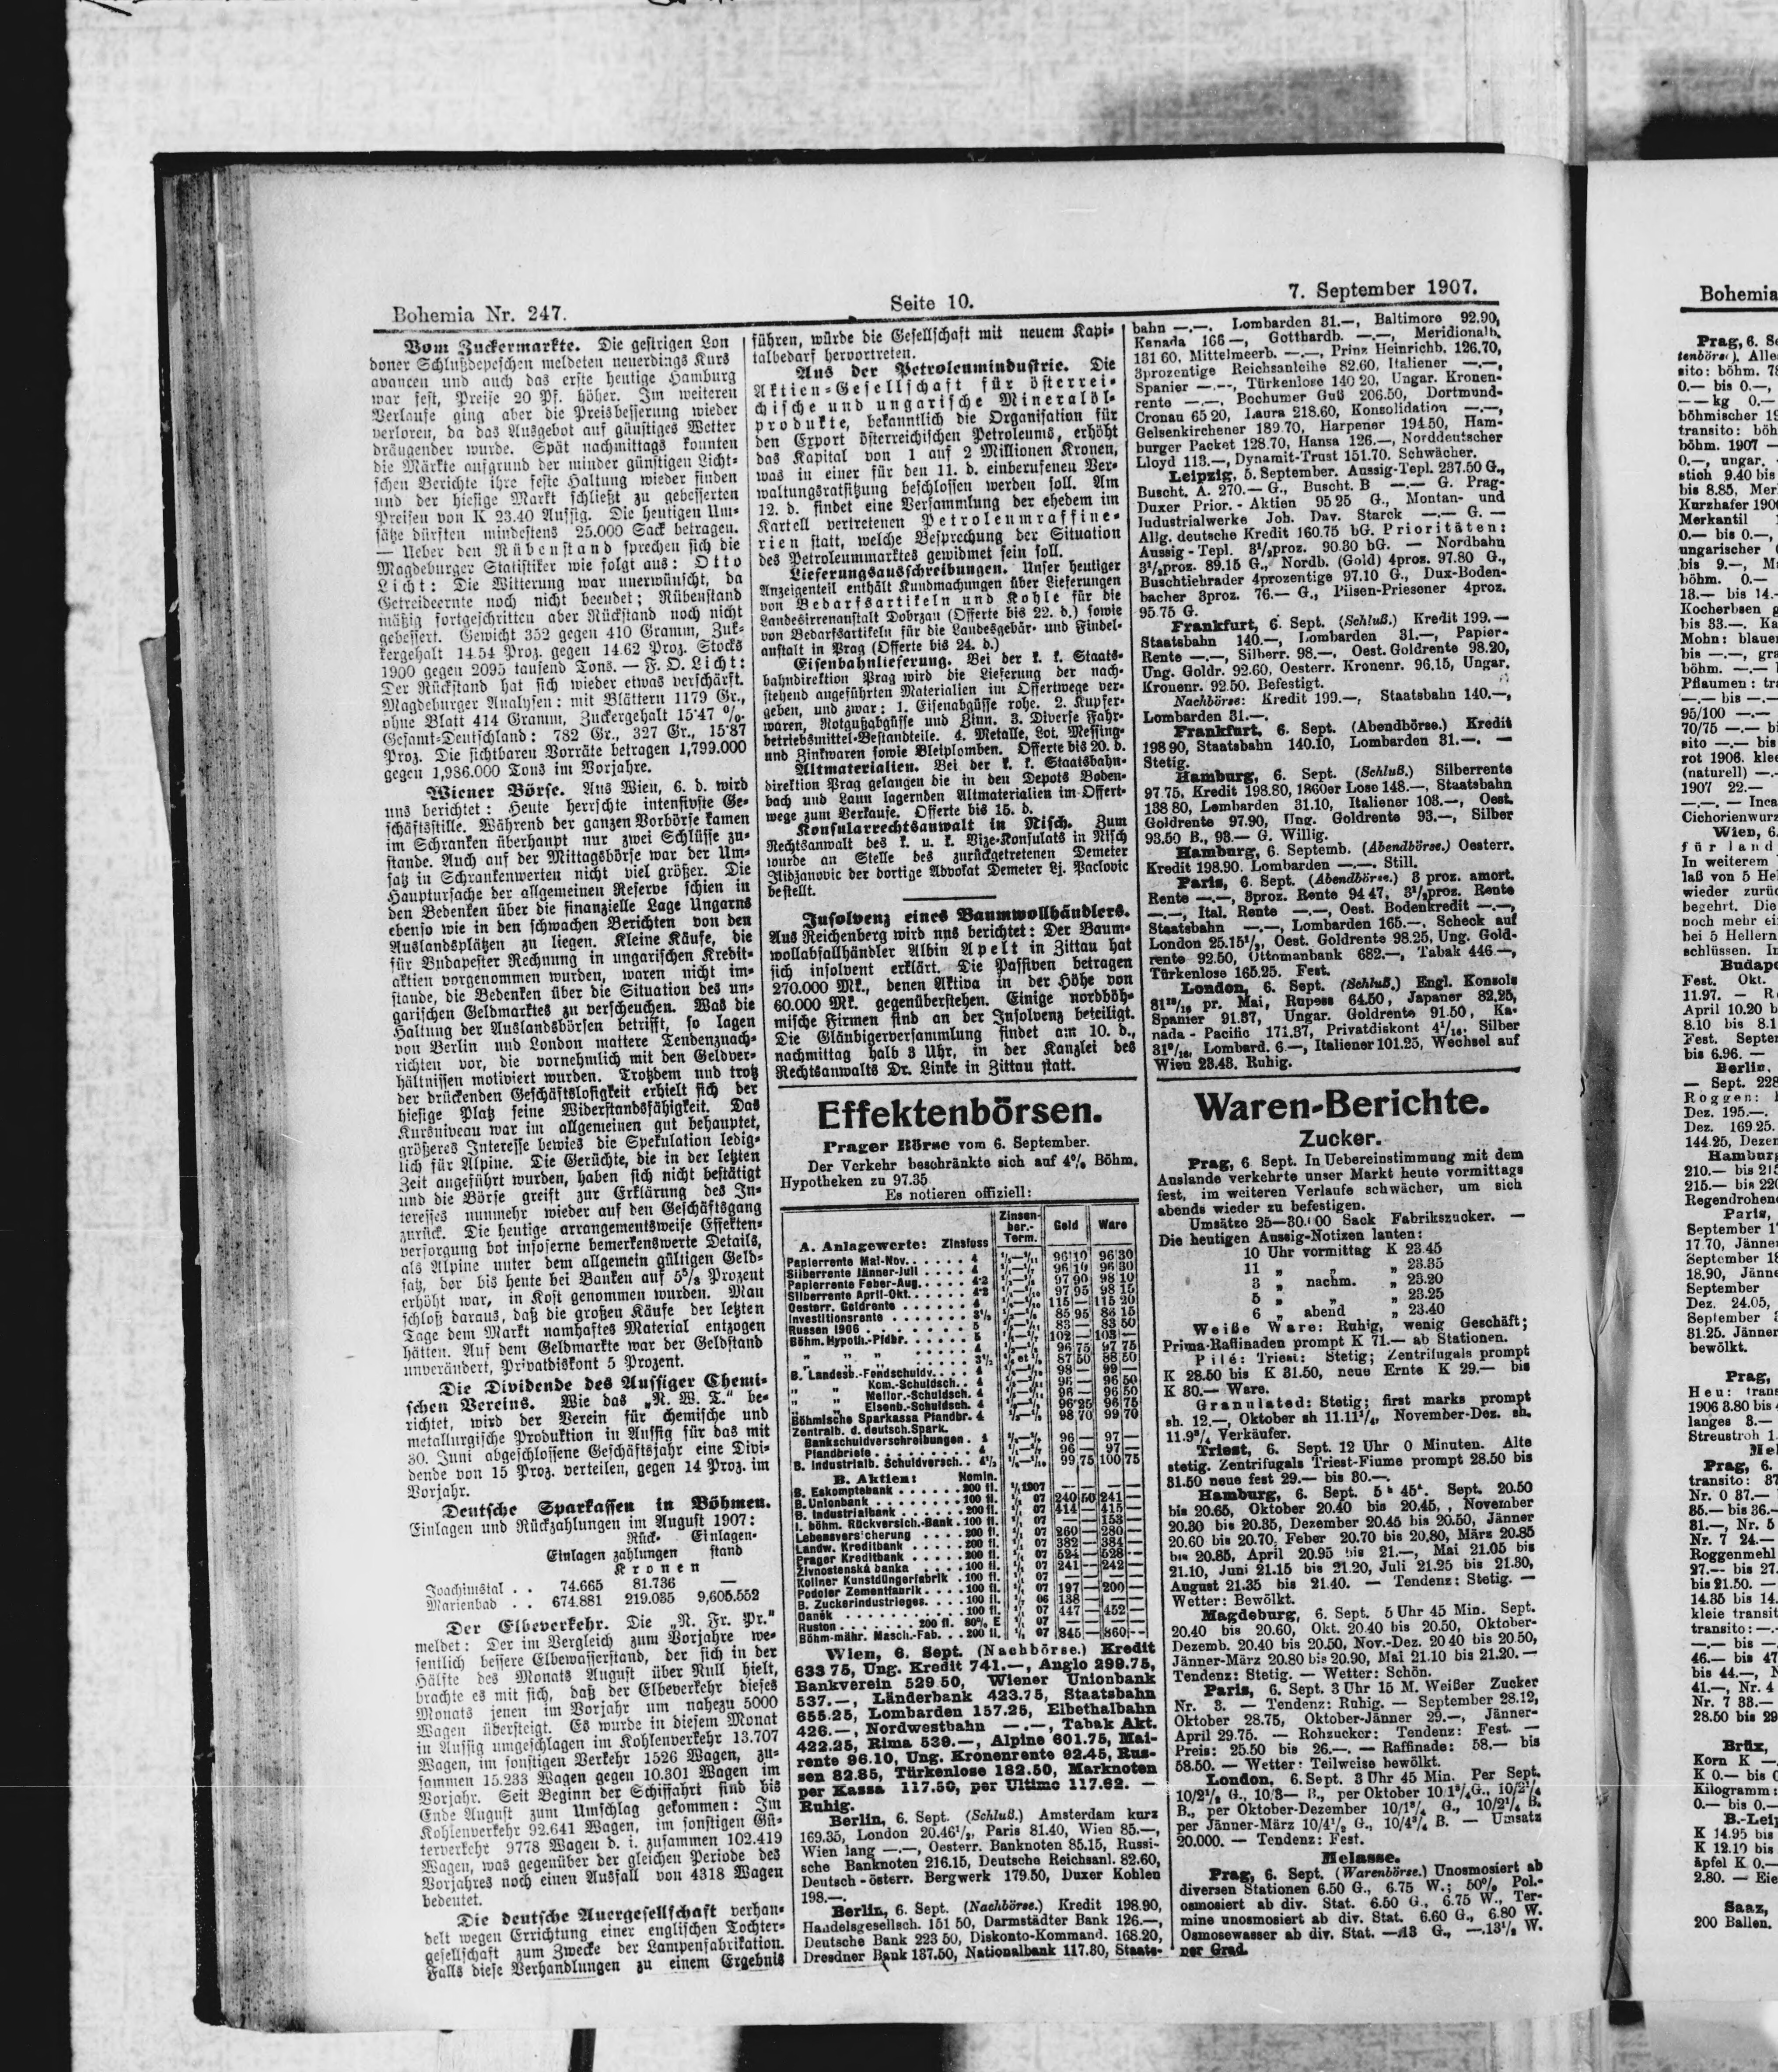 Bohemia Nr. 247.
Seite 10.
7. September 1907.
Vom Zuckermarkte. Die gestrigen Lon
doner Schlußdepeschen meldeten neuerdings Kurs
avancen und auch das erste heutige Hamburg
war fest, Preise 20 Pf. höher. Im weiteren
Verlaufe ging aber die Preisbesserung wieder
verloren, da das Ausgebot auf günstiges Wetter
drängender wurde. Spät nachmittags konnten
die Märkte aufgrund der minder günstigen Licht-
schen Berichte ihre feste Haltung wieder finden
und der hiesige Markt schließt zu gebesserten
Preisen von K 23.40 Aussig. Die heutigen Um-
sätze dürften mindestens 25.000 Sack betragen.
— Ueber den Rübenstand sprechen sich die
Magdeburger Statistiker wie folgt aus: Otto
Licht: Die Witterung war unerwünscht, da
Getreideernte noch nicht beendet; Rübenstand
mäßig fortgeschritten aber Rückstand noch nicht
gebessert. Gewicht 352 gegen 410 Gramm, Zuk-
kergehalt 14.54 Proz. gegen 14.62 Proz. Stocks
1900 gegen 2095 tausend Tons. — F. O. Licht:
Der Rückstand hat sich wieder etwas verschärft.
Magdeburger Analysen: mit Blättern 1179 Gr.,
ohne Blatt 414 Gramm, Zuckergehalt 15·47 %.
Gesamt-Deutschland: 782 Gr., 327 Gr., 15·87
Proz. Die sichtbaren Vorräte betragen 1,799.000
gegen 1,986.000 Tons im Vorjahre.
Wiener Börse. Aus Wien, 6. d. wird
uns berichtet: Heute herrschte intensivste Ge-
schäftsstille. Während der ganzen Vorbörse kamen
im Schranken überhaupt nur zwei Schlüsse zu-
stande. Auch auf der Mittagsbörse war der Um-
satz in Schrankenwerten nicht viel größer. Die
Hauptursache der allgemeinen Reserve schien in
den Bedenken über die finanzielle Lage Ungarns
ebenso wie in den schwachen Berichten von den
Auslandsplätzen zu liegen. Kleine Käufe, die
für Budapester Rechnung in ungarischen Kredit-
aktien vorgenommen wurden, waren nicht im-
stande, die Bedenken über die Situation des un-
garischen Geldmarktes zu verscheuchen. Was die
Haltung der Auslandsbörsen betrifft, so lagen
von Berlin und London mattere Tendenznach-
richten vor, die vornehmlich mit den Geldver-
hältnissen motiviert wurden. Trotzdem und trotz
der drückenden Geschäftslosigkeit erhielt sich der
hiesige Platz seine Widerstandsfähigkeit. Das
Kursniveau war im allgemeinen gut behauptet,
größeres Interesse bewies die Spekulation ledig-
lich für Alpine. Die Gerüchte, die in der letzten
Zeit angeführt wurden, haben sich nicht bestätigt
und die Börse greift zur Erklärung des In-
teresses nunmehr wieder auf den Geschäftsgang
zurück. Die heutige arrangementsweise Effekten-
versorgung bot insoferne bemerkenswerte Details,
als Alpine unter dem allgemein gültigen Geld-
satz, der bis heute bei Banken auf 5⅝ Prozent
erhöht war, in Kost genommen wurden. Man
schloß daraus, daß die großen Käufe der letzten
Tage dem Markt namhaftes Material entzogen
hätten. Auf dem Geldmarkte war der Geldstand
unverändert, Privatdiskont 5 Prozent.
Die Dividende des Aussiger Chemi-
schen Vereins. Wie das „N. W. T.“ be-
richtet, wird der Verein für chemische und
metallurgische Produktion in Aussig für das mit
30. Juni abgeschlossene Geschäftsjahr eine Divi-
dende von 15 Proz. verteilen, gegen 14 Proz. im
Vorjahr.
Deutsche Sparkassen in Böhmen.
Einlagen und Rückzahlungen im August 1907:
Rück- Einlagen-
Einlagen zahlungen stand
Kronen
Joachimstal . . 74.665 81.736 —
Marienbad . . 674.881 219.035 9,605.552
Der Elbeverkehr. Die „N. Fr. Pr.“
meldet: Der im Vergleich zum Vorjahre we-
sentlich bessere Elbewasserstand, der sich in der
Hälfte des Monats August über Null hielt,
brachte es mit sich, daß der Elbeverkehr dieses
Monats jenen im Vorjahr um nahezu 5000
Wagen übersteigt. Es wurde in diesem Monat
in Aussig umgeschlagen im Kohlenverkehr 13.707
Wagen, im sonstigen Verkehr 1526 Wagen, zu-
sammen 15.233 Wagen gegen 10.301 Wagen im
Vorjahr. Seit Beginn der Schiffahrt sind bis
Ende August zum Umschlag gekommen: Im
Kohlenverkehr 92.641 Wagen, im sonstigen Gü-
terverkehr 9778 Wagen d. i. zusammen 102.419
Wagen, was gegenüber der gleichen Periode des
Vorjahres noch einen Ausfall von 4318 Wagen
bedeutet.
Die deutsche Auergesellschaft verhan-
delt wegen Errichtung einer englischen Tochter-
gesellschaft zum Zwecke der Lampenfabrikation.
Falls diese Verhandlungen zu einem Ergebnis
führen, würde die Gesellschaft mit neuem Kapi-
talbedarf hervortreten.
Aus der Petroleumindustrie. Die
Aktien-Gesellschaft für österrei-
chische und ungarische Mineralöl-
produkte, bekanntlich die Organisation für
den Export österreichischen Petroleums, erhöht
das Kapital von 1 auf 2 Millionen Kronen,
was in einer für den 11. d. einberufenen Ver-
waltungsratsitzung beschlossen werden soll. Am
12. d. findet eine Versammlung der ehedem im
Kartell vertretenen Petroleumraffine-
rien statt, welche Besprechung der Situation
des Petroleummarktes gewidmet sein soll.
Lieferungsausschreibungen. Unser heutiger
Anzeigenteil enthält Kundmachungen über Lieferungen
von Bedarfsartikeln und Kohle für die
Landesirrenanstalt Dobrzan (Offerte bis 22. d.) sowie
von Bedarfsartikeln für die Landesgebär- und Findel-
anstalt in Prag (Offerte bis 24. d.)
Eisenbahnlieferung. Bei der k. k. Staats-
bahndirektion Prag wird die Lieferung der nach-
stehend angeführten Materialien im Offertwege ver-
geben, und zwar: 1. Eisenabgüsse rohe. 2. Kupfer-
waren, Rotgußabgüsse und Zinn. 3. Diverse Fahr-
betriebsmittel-Bestandteile. 4. Metalle, Lot. Messing-
und Zinkwaren sowie Bleiplomben. Offerte bis 20. d.
Altmaterialien. Bei der k. k. Staatsbahn-
direktion Prag gelangen die in den Depots Boden-
bach und Laun lagernden Altmaterialien im Offert-
wege zum Verkaufe. Offerte bis 15. d.
Konsularrechtsanwalt in Nisch. Zum
Rechtsanwalt des k. u. k. Vize-Konsulats in Nisch
wurde an Stelle des zurückgetretenen Demeter
Ilidzanovic der dortige Advokat Demeter Lj. Paclovic
bestellt.
Insolvenz eines Baumwollhändlers.
Aus Reichenberg wird uns berichtet: Der Baum-
wollabfallhändler Albin Apelt in Zittau hat
sich insolvent erklärt. Die Passiven betragen
270.000 Mk., denen Aktiva in der Höhe von
60.000 Mk. gegenüberstehen. Einige nordböh-
mische Firmen sind an der Insolvenz beteiligt.
Die Gläubigerversammlung findet am 10. d.,
nachmittag halb 3 Uhr, in der Kanzlei des
Rechtsanwalts Dr. Linke in Zittau statt.
Effektenbörsen.
Prager Börse vom 6. September.
Der Verkehr beschränkte sich auf 4% Böhm.
Hypotheken zu 97.35
Es notieren offiziell:
A. Anlagewerte: Zinsfuss Zinsen-ber.-Term. Geld Ware
Papierrente Mai-Nov. . . . . . 4 96 10 96 30
Silberrente Jänner-Juli . . . . 4 96 10 96 30
Papierrente Feber-Aug. . . . . 4·2 97 90 98 10
Silberrente April-Okt. . . . . . 4·2 97 95 98 15
Oesterr. Goldrente . . . . . . . 4 115 — 115 20
Investitionsrente . . . . . . . 3½ 85 95 86 15
Russen 1906 . . . . . . . . 5 83 — 83 50
Böhm. Hypoth.-Pfdbr. . . . . . 5 102 — 103 —
„ „ „ . . . . . 4 96 75 97 75
3½ 87 50 88 50
B. Landesb.-Fondschuldv. . . . . 4 98 — 99 —
„ „ Kom.-Schuldsch. . 4 96 — 96 50
„ „ Melior.-Schuldsch. 4 96 — 96 50
„ „ Eisenb.-Schuldsch. 4 96 25 96 75
Böhmische Sparkassa Pfandbr. 4 98 70 99 70
Zentralb. d. deutsch. Spark.
Bankschuldverschreibungen . 4 96 — 97 —
Pfandbriefe . . . . . . . . . 4 96 — 97 —
B. Industrialb. Schuldversch. . 4½ 99 75 100 75
B. Aktien: Nomin.
B. Eskomptebank . . . . . . 200 fl. 1907 — — — —
B. Unionbank . . . . . . . . 100 fl. 07 240 50 241 —
B. Industrialbank . . . . . . 200 fl. 07 414 — 415 —
I. böhm. Rückversich.-Bank . 100 fl. 07 — — 153 —
Lebensversicherung . . . . 200 fl. 07 260 — 280 —
Landw. Kreditbank . . . . . 200 fl. 07 382 — 384 —
Prager Kreditbank . . . . . 200 fl. 07 524 — 528 —
Živnostenská banka . . . . . 100 fl. 07 241 — 242 —
Kolíner Kunstdüngerfabrik . 100 fl. 07
Podoler Zementfabrik . . . . 100 fl. 07 197 — 200 —
B. Zuckerindustrieges. . . . . 100 fl. 06 138 — — —
Daněk . . . . . . . . . . . 100 fl. 07 447 — 452 —
Ruston . . . . . . . 200 fl. 80% E 07 — — — —
Böhm-mähr. Masch.-Fab. . . 200 fl. 07 845 — 860 —
Wien, 6. Sept. (Nachbörse.) Kredit
633 75, Ung. Kredit 741.—, Anglo 299.75,
Bankverein 529.50, Wiener Unionbank
537.—, Länderbank 423.75, Staatsbahn
655.25, Lombarden 157.25, Elbethalbahn
426.—, Nordwestbahn —.—, Tabak Akt.
422.25, Rima 539.—, Alpine 601.75, Mai-
rente 96.10, Ung. Kronenrente 92.45, Rus-
sen 82.85, Türkenlose 182.50, Marknoten
per Kassa 117.50, per Ultimo 117.62. —
Ruhig.
Berlin, 6. Sept. (Schluß.) Amsterdam kurz
169.35, London 20.46½, Paris 81.40, Wien 85.—,
Wien lang —.—, Oesterr. Banknoten 85.15, Russi-
sche Banknoten 216.15, Deutsche Reichsanl. 82.60,
Deutsch-österr. Bergwerk 179.50, Duxer Kohlen
198.—.
Berlin, 6. Sept. (Nachbörse.) Kredit 198.90,
Handelsgesellsch. 151 50, Darmstädter Bank 126.—,
Deutsche Bank 223 50, Diskonto-Kommand. 168.20,
Dresdner Bank 137.50, Nationalbank 117.30, Staats-
bahn —.—. Lombarden 31.—, Baltimore 92.90,
Kanada 166 —, Gotthardb. —.—, Meridionalb.
131 60, Mittelmeerb. —.—, Prinz Heinrichb. 126.70,
3prozentige Reichsanleihe 82.60, Italiener —.—,
Spanier —.—, Türkenlose 140 20, Ungar. Kronen-
rente —.—. Bochumer Guß 206.50, Dortmund-
Cronau 65 20, Laura 218.60, Konsolidation —.—,
Gelsenkirchener 189.70, Harpener 194.50, Ham-
burger Packet 128.70, Hansa 126.—, Norddeutscher
Lloyd 113.—, Dynamit-Trust 151.70. Schwächer.
Leipzig, 5. September. Aussig-Tepl. 237.50 G.,
Buscht. A. 270.— G., Buscht. B —.— G. Prag-
Duxer Prior.-Aktien 95 25 G., Montan- und
Industrialwerke Joh. Dav. Starck —.— G. —
Allg. deutsche Kredit 160.75 bG. Prioritäten:
Aussig-Tepl. 3½proz. 90.30 bG. — Nordbahn
3½proz. 89.15 G., Nordb. (Gold) 4proz. 97.80 G.,
Buschtiehrader 4prozentige 97.10 G., Dux-Boden-
bacher 3proz. 76.— G., Pilsen-Priesener 4proz.
95.75 G.
Frankfurt, 6. Sept. (Schluß.) Kredit 199.—
Staatsbahn 140.—, Lombarden 31.—, Papier-
Rente —.—, Silberr. 98.—, Oest. Goldrente 98.20,
Ung. Goldr. 92.60, Oesterr. Kronenr. 96.15, Ungar.
Kronenr. 92.50. Befestigt.
Nachbörse: Kredit 199.—, Staatsbahn 140.—,
Lombarden 31.—.
Frankfurt, 6. Sept. (Abendbörse.) Kredit
198 90, Staatsbahn 140.10, Lombarden 31.—. —
Stetig.
Hamburg, 6. Sept. (Schluß.) Silberrente
97.75, Kredit 198.80, 1860er Lose 148.—, Staatsbahn
138 80, Lombarden 31.10, Italiener 103.—, Oest.
Goldrente 97.90, Ung. Goldrente 93.—, Silber
93.50 B., 93.— G. Willig.
Hamburg, 6. Septemb. (Abendbörse.) Oesterr.
Kredit 198.90. Lombarden —.—. Still.
Paris, 6. Sept. (Abendbörse.) 3 proz. amort.
Rente —.—, 3proz. Rente 94 47, 3½proz. Rente
—.—, Ital. Rente —.—, Oest. Bodenkredit —.—,
Staatsbahn —.—, Lombarden 165.—, Scheck auf
London 25.15½, Oest. Goldrente 98.25, Ung. Gold-
rente 92.50, Ottomanbank 682.—, Tabak 446.—,
Türkenlose 165.25. Fest.
London, 6. Sept. (Schluß.) Engl. Konsols
pr. Mai, Rupess 64.50, Japaner 82.25,
Spanier 91.87, Ungar. Goldrente 91.50, Ka-
nada-Pacific 171.37, Privatdiskont Silber
Lombard. 6.—, Italiener 101.25, Wechsel auf
Wien 23.43. Ruhig.
Waren-Berichte.
Zucker.
Prag, 6 Sept. In Uebereinstimmung mit dem
Auslande verkehrte unser Markt heute vormittags
fest, im weiteren Verlaufe schwächer, um sich
abends wieder zu befestigen.
Umsätze 25—30.000 Sack Fabrikszucker. —
Die heutigen Aussig-Notizen lauten:
10 Uhr vormittag K 23.45
11 „ „ „ 23.35
3 „ nachm. „ 23.20
5 „ „ „ 23.25
6 „ abend „ 23.40
Weiße Ware: Ruhig, wenig Geschäft;
Prima-Raffinaden prompt K 71.— ab Stationen.
Pilé: Triest: Stetig; Zentrifugals prompt
K 28.50 bis K 31.50, neue Ernte K 29.— bis
K 30.— Ware.
Granulated: Stetig; first marks prompt
sh. 12.—, Oktober sh 11.11¼, November-Dez. sh.
11.9¾ Verkäufer.
Triest, 6. Sept. 12 Uhr 0 Minuten. Alte
stetig. Zentrifugals Triest-Fiume prompt 28.50 bis
31.50 neue fest 29.— bis 30.—.
Hamburg, 6. Sept. 5 h 45'. Sept. 20.50
bis 20.65, Oktober 20.40 bis 20.45, November
20.30 bis 20.35, Dezember 20.45 bis 20.50, Jänner
20.60 bis 20.70, Feber 20.70 bis 20.80, März 20.85
bis 20.85, April 20.95 bis 21.—, Mai 21.05 bis
21.10, Juni 21.15 bis 21.20, Juli 21.25 bis 21.30,
August 21.35 bis 21.40. — Tendenz: Stetig. —
Wetter: Bewölkt.
Magdeburg, 6. Sept. 5 Uhr 45 Min. Sept.
20.40 bis 20.60, Okt. 20.40 bis 20.50, Oktober-
Dezemb. 20.40 bis 20.50, Nov.-Dez. 20 40 bis 20.50,
Jänner-März 20.80 bis 20.90, Mai 21.10 bis 21.20. —
Tendenz: Stetig. — Wetter: Schön.
Paris, 6. Sept. 3 Uhr 15 M. Weißer Zucker
Nr. 3. — Tendenz: Ruhig. — September 28.12,
Oktober 28.75, Oktober-Jänner 29.—, Jänner-
April 29.75. — Rohzucker: Tendenz: Fest. —
Preis: 25.50 bis 26.—. — Raffinade: 58.— bis
58.50. — Wetter: Teilweise bewölkt.
London, 6. Sept. 3 Uhr 45 Min. Per Sept.
10/2½ G., 10/3— B., per Oktober 10/1¾ G., 10/2¼
B., per Oktober-Dezember 10/1¾ G., 10/2¼ B.
per Jänner-März 10/4½ G., 10/4¾ B. — Umsatz
20.000. — Tendenz: Fest.
Melasse.
Prag, 6. Sept. (Warenbörse.) Unosmosiert ab
diversen Stationen 6.50 G., 6.75 W.; 50% Pol.-
osmosiert ab div. Stat. 6.50 G., 6.75 W., Ter-
mine unosmosiert ab div. Stat. 6.60 G., 6.80 W.
Osmosewasser ab div. Stat. —.13 G., —.13½ W.
per Grad.
Bohemia
Prag, 6. Se
tenbörse). Alle
sito: böhm. 78
0.— bis 0.—,
— — kg 0.—
böhmischer 19
transito: böh
böhm. 1907 —
0.—, ungar.
stich 9.40 bis
bis 8.85, Mer
Kurzhafer 190
Merkantil 1
0.— bis 0.—,
ungarischer
bis 9.—, M
böhm. 0.—
13.— bis 14.-
Kocherbsen g
bis 33.—. Ka
Mohn: blauer
bis —.—, gra
böhm. —.—
Pflaumen: tra
—.— bis —.—
95/100 —.—
70/75 —.— bi
sito —.— bis
rot 1906. klee
(naturell) —.-
1907 22.—
—.—. — Inca
Cichorienwurz
Wien, 6.
für land
In weiterem
laß von 5 He
wieder zurüc
begehrt. Die
noch mehr ei
bei 5 Hellern
schlüssen. In
Budape
Fest. Okt.
11.97. — R
April 10.20 b
8.10 bis 8.1
Fest. Septe
bis 6.96. —
Berlin,
— Sept. 228
Roggen:
Dez. 195.—.
Dez. 169 25.
144.25, Dezem
Hamburg
210.— bis 215
215.— bis 220
Regendrohend
Paris,
September 1
17.70, Jänner
September 18
18.90, Jänne
September
Dez. 24.05,
September
31.25. Jänner
bewölkt.
Prag,
Heu: trans
1906 3.80 bis
langes 3.—
Streustroh 1
Me
Prag, 6.
transito: 37
Nr. 0 37.—
35.— bis 36.—
31.—, Nr. 5
Nr. 7 24.—
Roggenmehl
27.— bis 27.
bis 21.50. —
14.35 bis 14.
kleie transit
transito: —.
—.— bis —.
46.— bis 47
bis 44.—, N
41.—, Nr. 4
Nr. 7 33.—
28.50 bis 29
Brüx,
Korn K —.
K 0.— bis 0
Kilogramm:
0.— bis 0.—
B.-Leip
K 14.95 bis
K 12.10 bis
äpfel K 0.—
2.80. — Eie
Saaz,
200 Ballen.